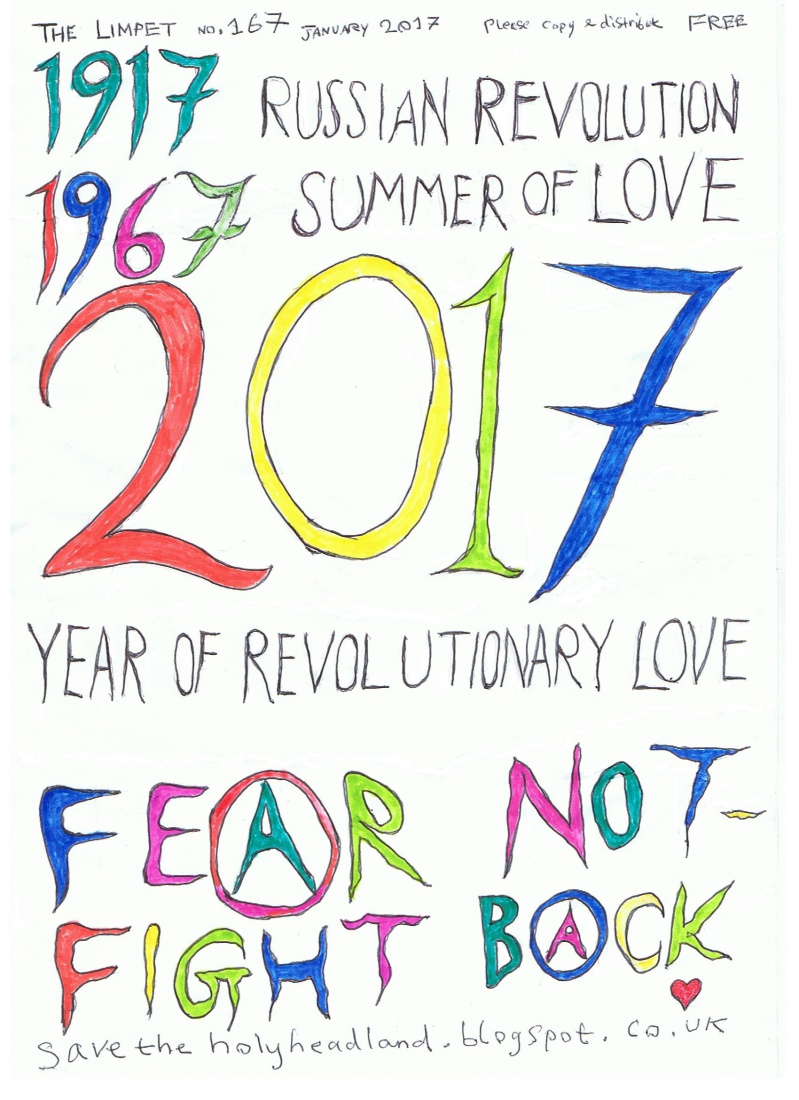 THE LIMPET NO. 167 JANUARY 2017 Please copy & distribute FREE
1917 RUSSIAN REVOLUTION
1967 SUMMER OF LOVE
2017
YEAR OF REVOLUTIONARY LOVE
FEAR NOT-
FIGHT BACK
savetheholyheadland.blogspot.co.uk